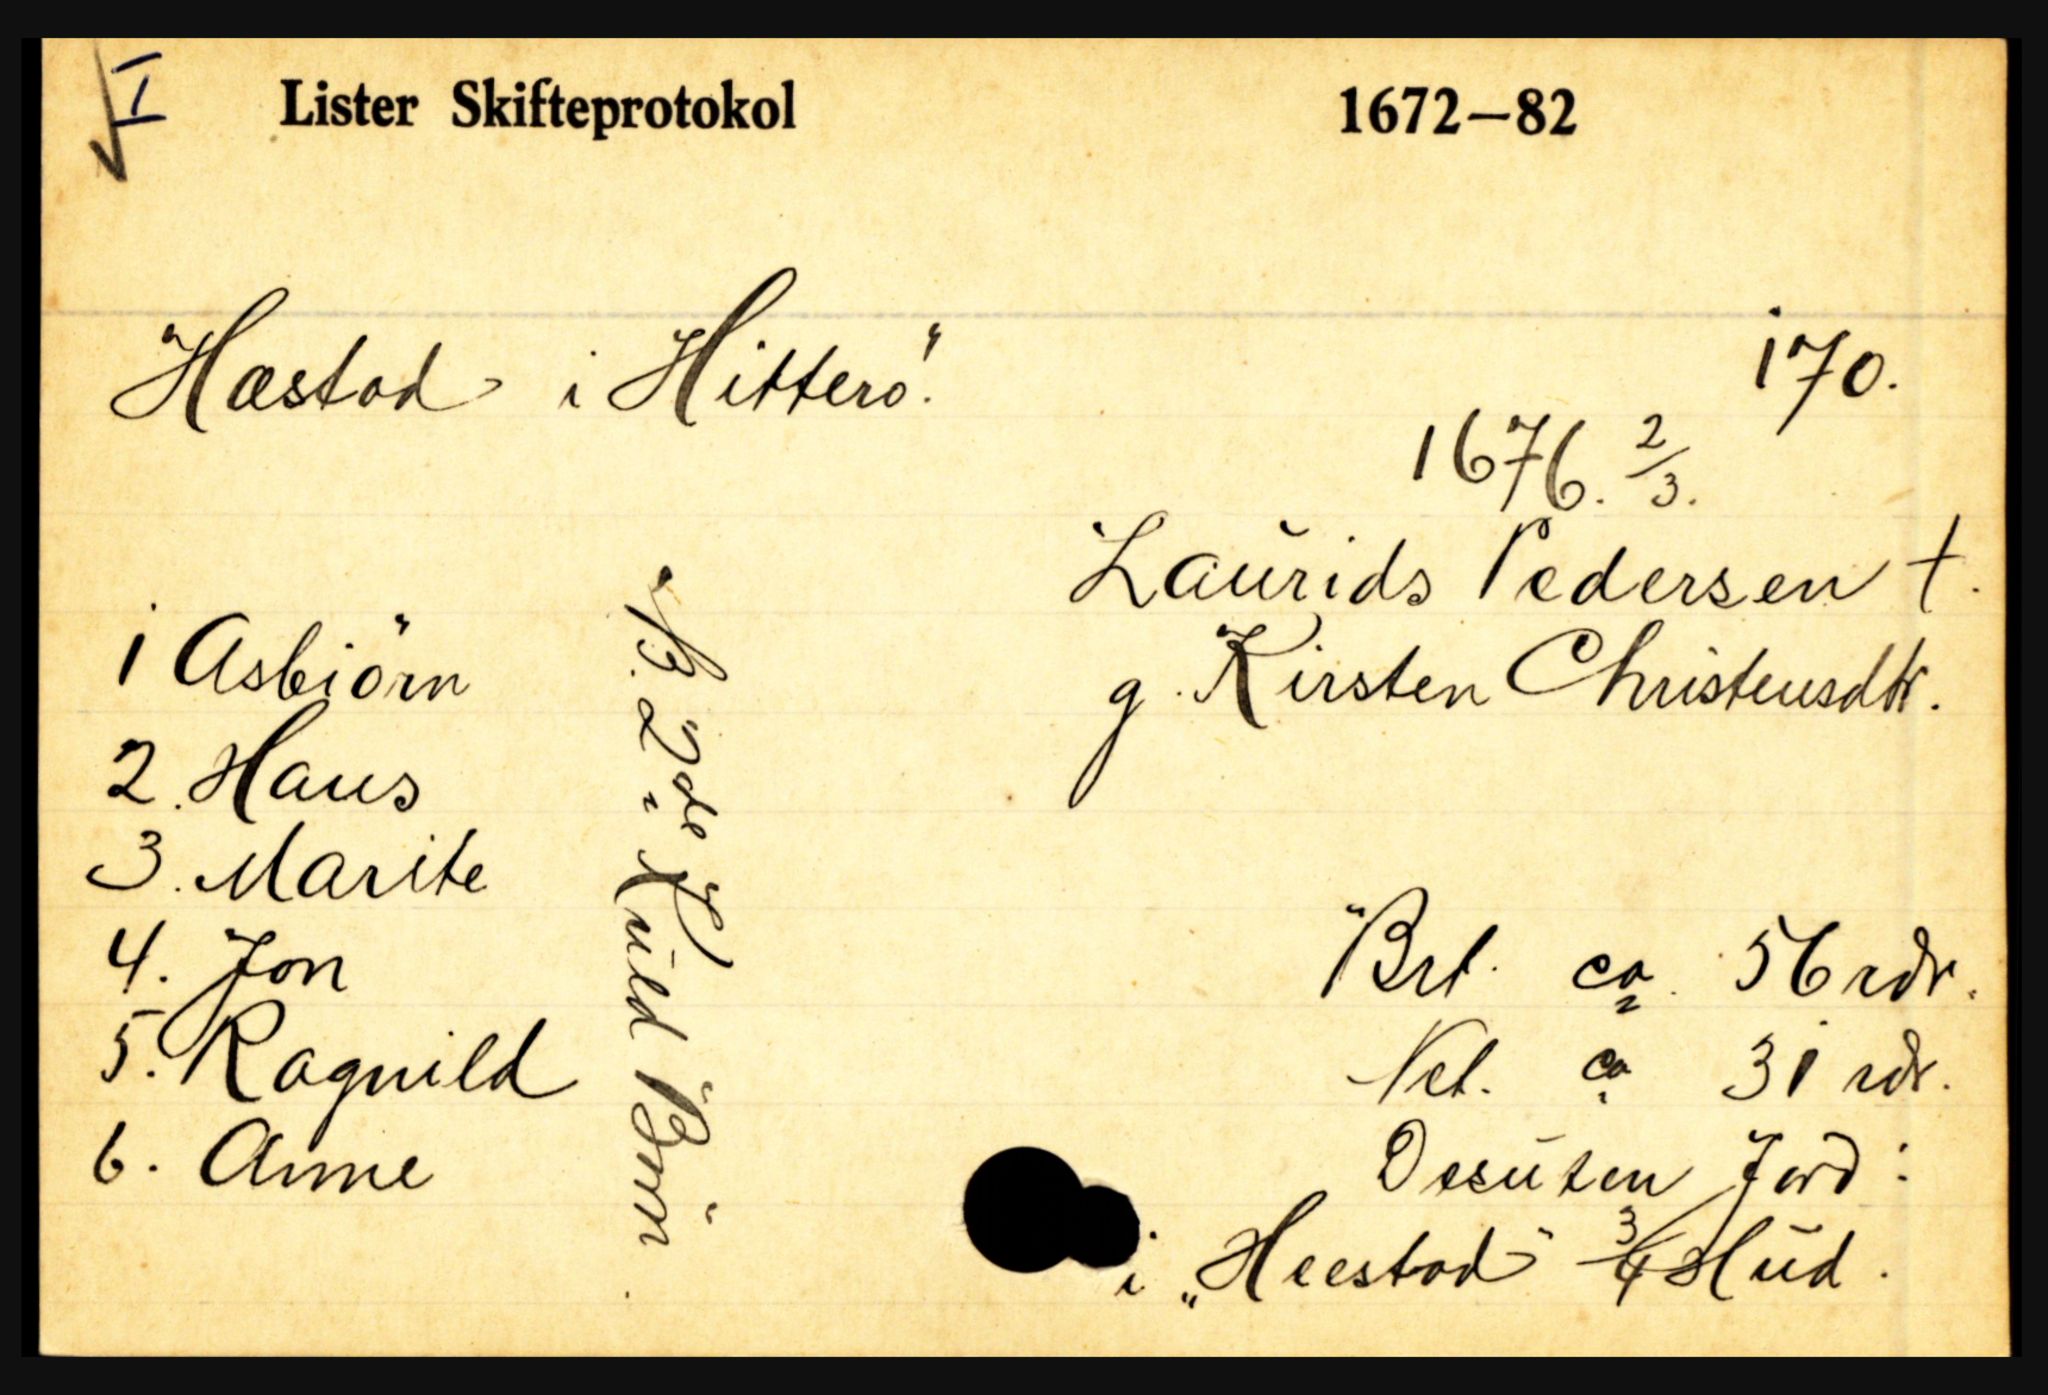 I Lister Skifteprotokol 1672—82
Hæstad i Hitterö. 170.
1676. 2/3.
Laurids Pedersen †.
g. Kirsten Christensdtr.
1 Asbiörn
2. Hans
3. Marite
4. Jon
5. Ragnild
6. Anne
2de Kuld Börn
Brt. ca. 56 rdr.
Net. ca 31 rdr.
Desuten Jord:
i „Heestad" 3/4 Hud.